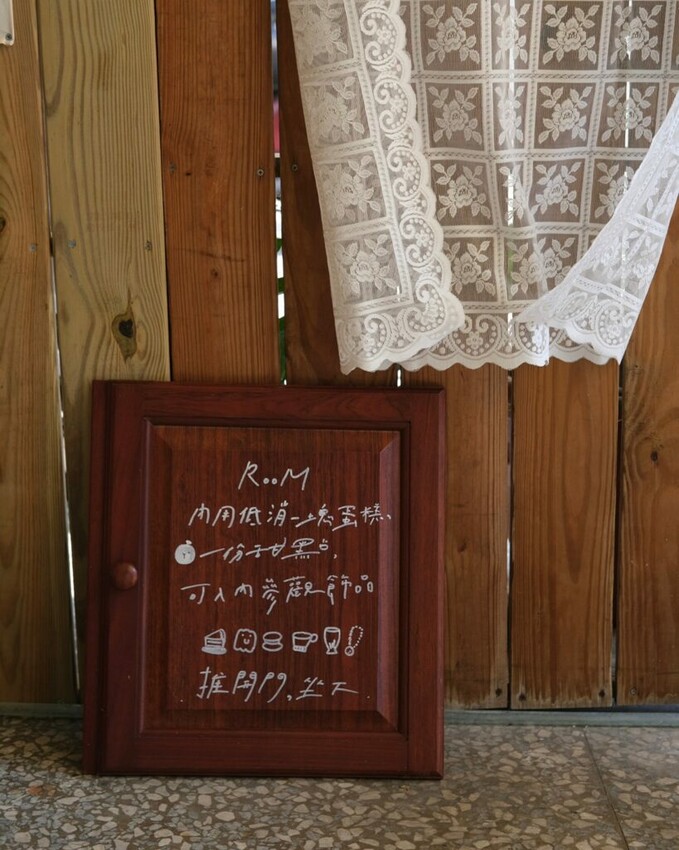 ROOM
內用低消一塊蛋糕、
一份甜點,
可入內參觀飾品
推開門,坐下